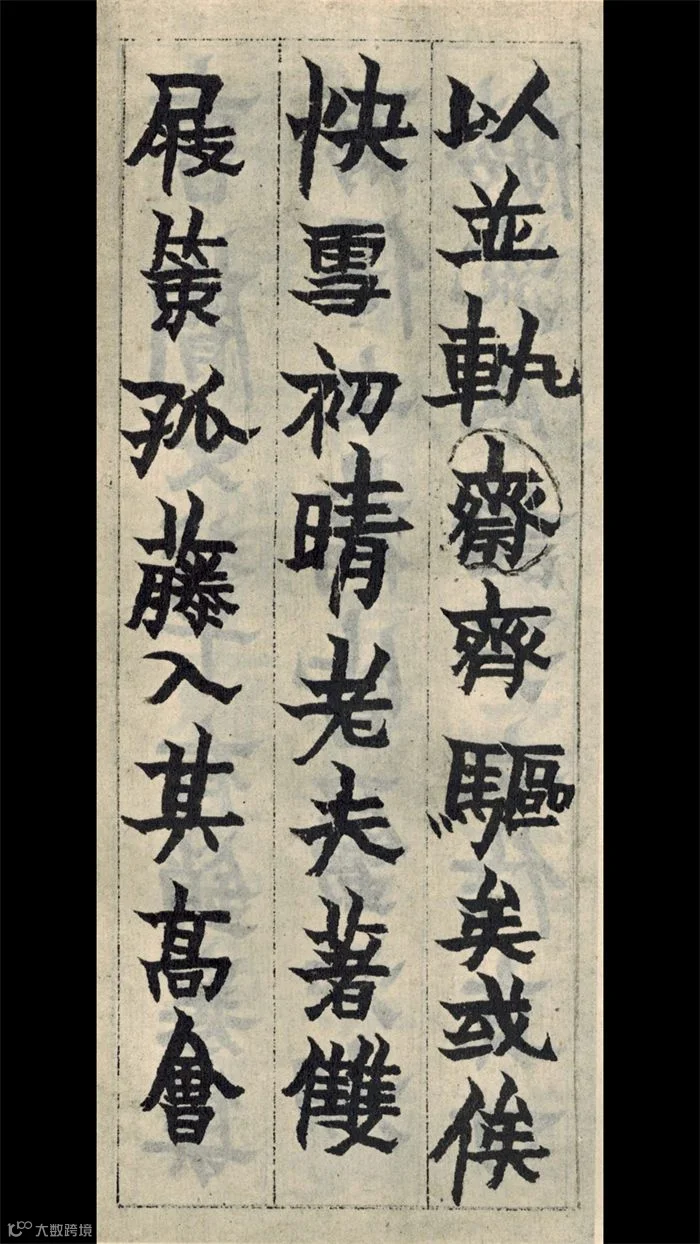 以並軌齋齊驅矣或俟
快雪初晴老夫著雙
屐策孤藤入其高會
大数跨境